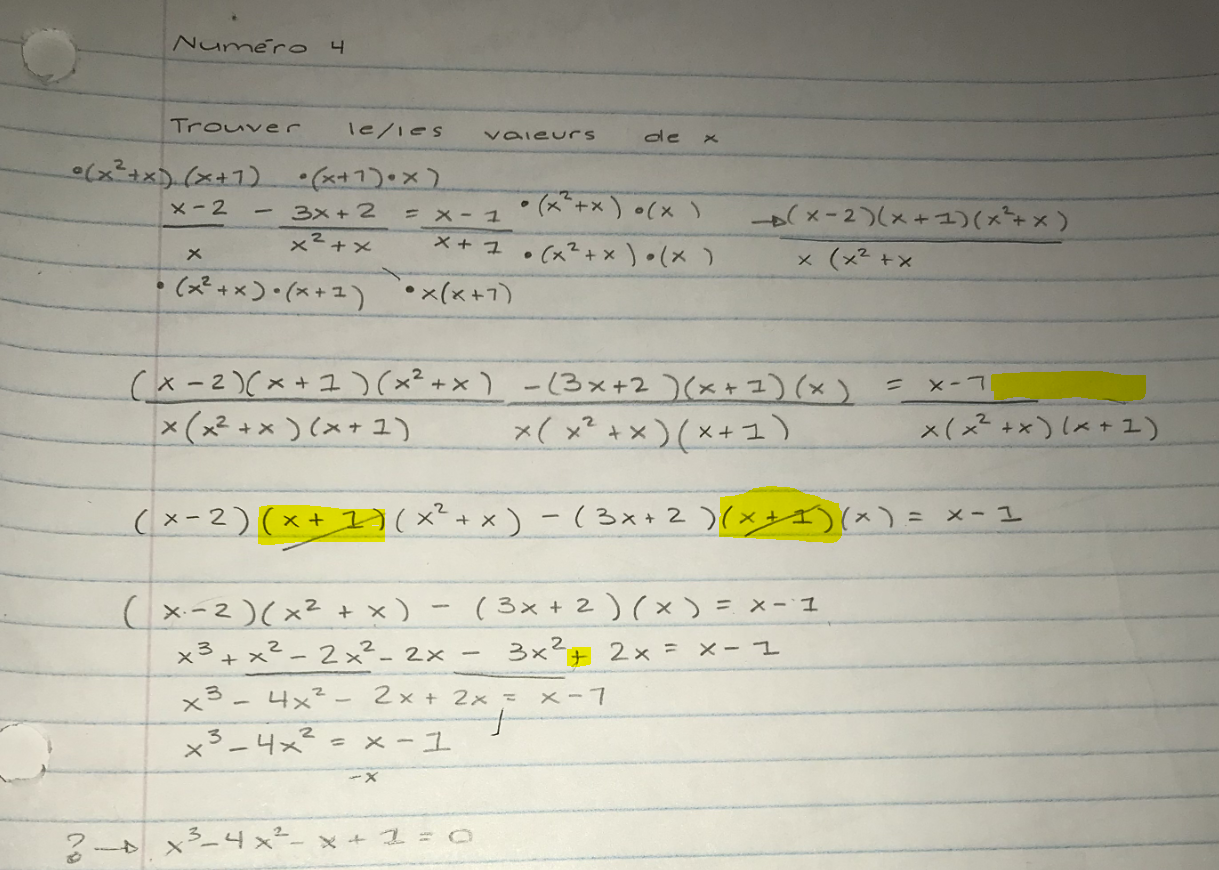 Numéro 4
Trouver le/les valeurs de x
•(x²+x).(x+1) •(x+1)•x)
x-2/x - 3x+2/x²+x = x-1/x+1 •(x²+x)•(x) / •(x²+x)•(x) → (x-2)(x+1)(x²+x)/x(x²+x
•(x²+x)•(x+1) •x(x+1)
(x-2)(x+1)(x²+x)/x(x²+x)(x+1) -(3x+2)(x+1)(x)/x(x²+x)(x+1) = x-1/x(x²+x)(x+1)
(x-2)(x+1)(x²+x) - (3x+2)(x+1)(x) = x-1
(x-2)(x²+x) - (3x+2)(x) = x-1
x³+x²-2x²-2x-3x²+2x = x-1
x³-4x²-2x+2x = x-1
x³-4x² = x-1
-x
? → x³-4x²-x+1=0